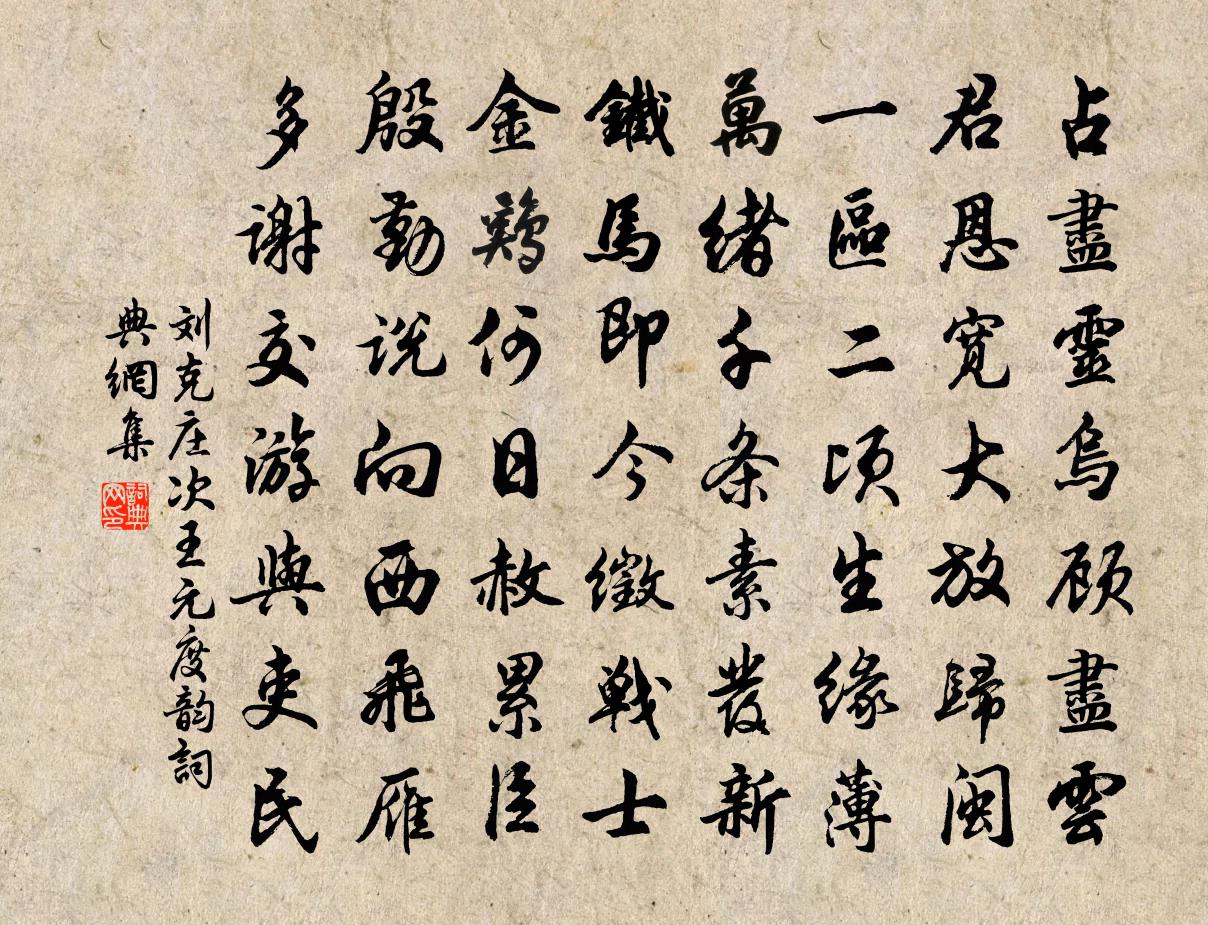 占盡靈烏顧盡雲
君恩寬大放歸闽
一區二頃生緣薄
萬緒千条素髮新
鐵馬即今徵戰士
金鷄何日赦累臣
殷勤説向西飛雁
多謝交游與吏民
刘克庄次王元度韵詞
典網集
詞典網印